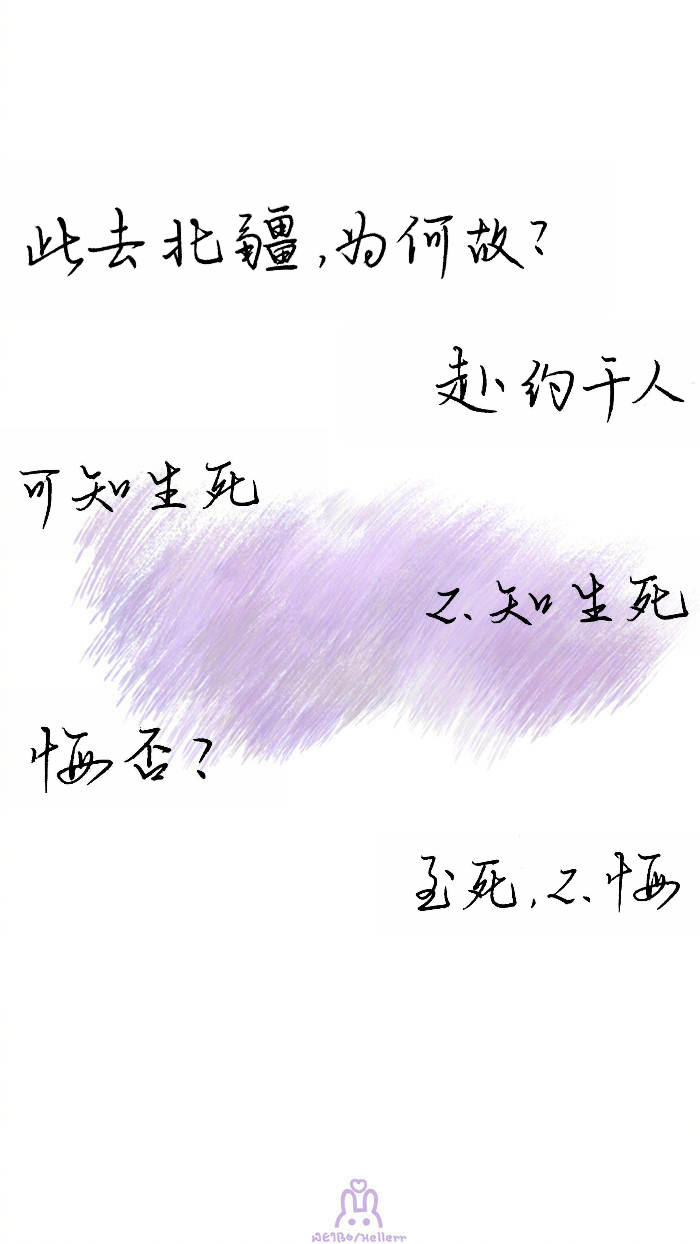 此去北疆,为何故?
赴约于人
可知生死
不知生死
悔否?
至死,不悔
WEIBO/Hellerr